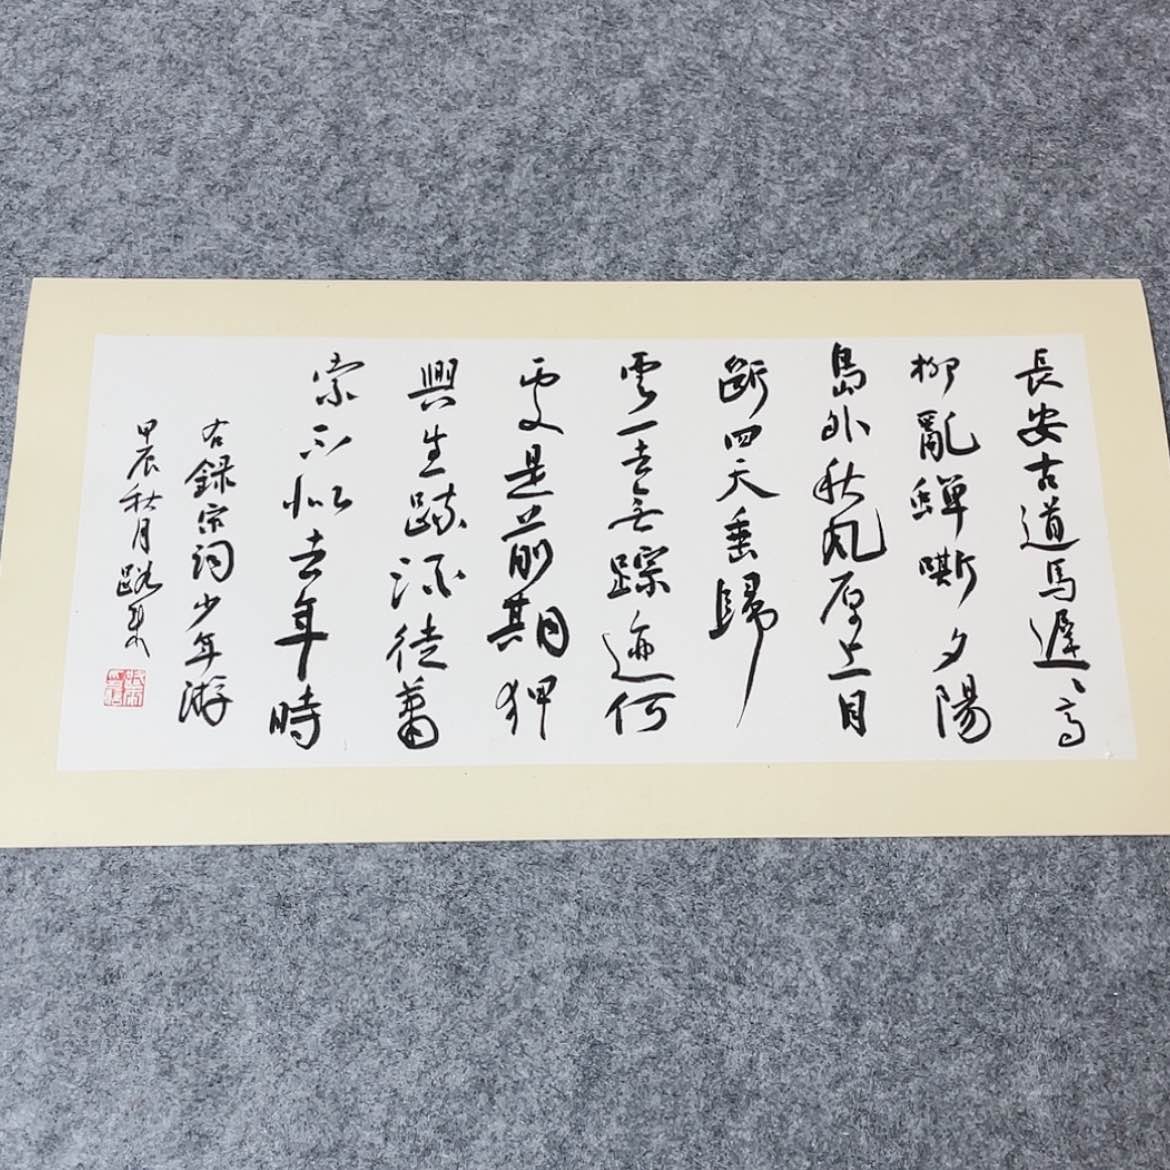 長安古道馬遲〻高
柳亂蟬嘶夕陽
島外秋風原上目
斷四天垂歸
雲一去無蹤迹何
處是前期狎
興生疎酒徒蕭
索不似去年時
右録宋詞少年游
甲辰秋月